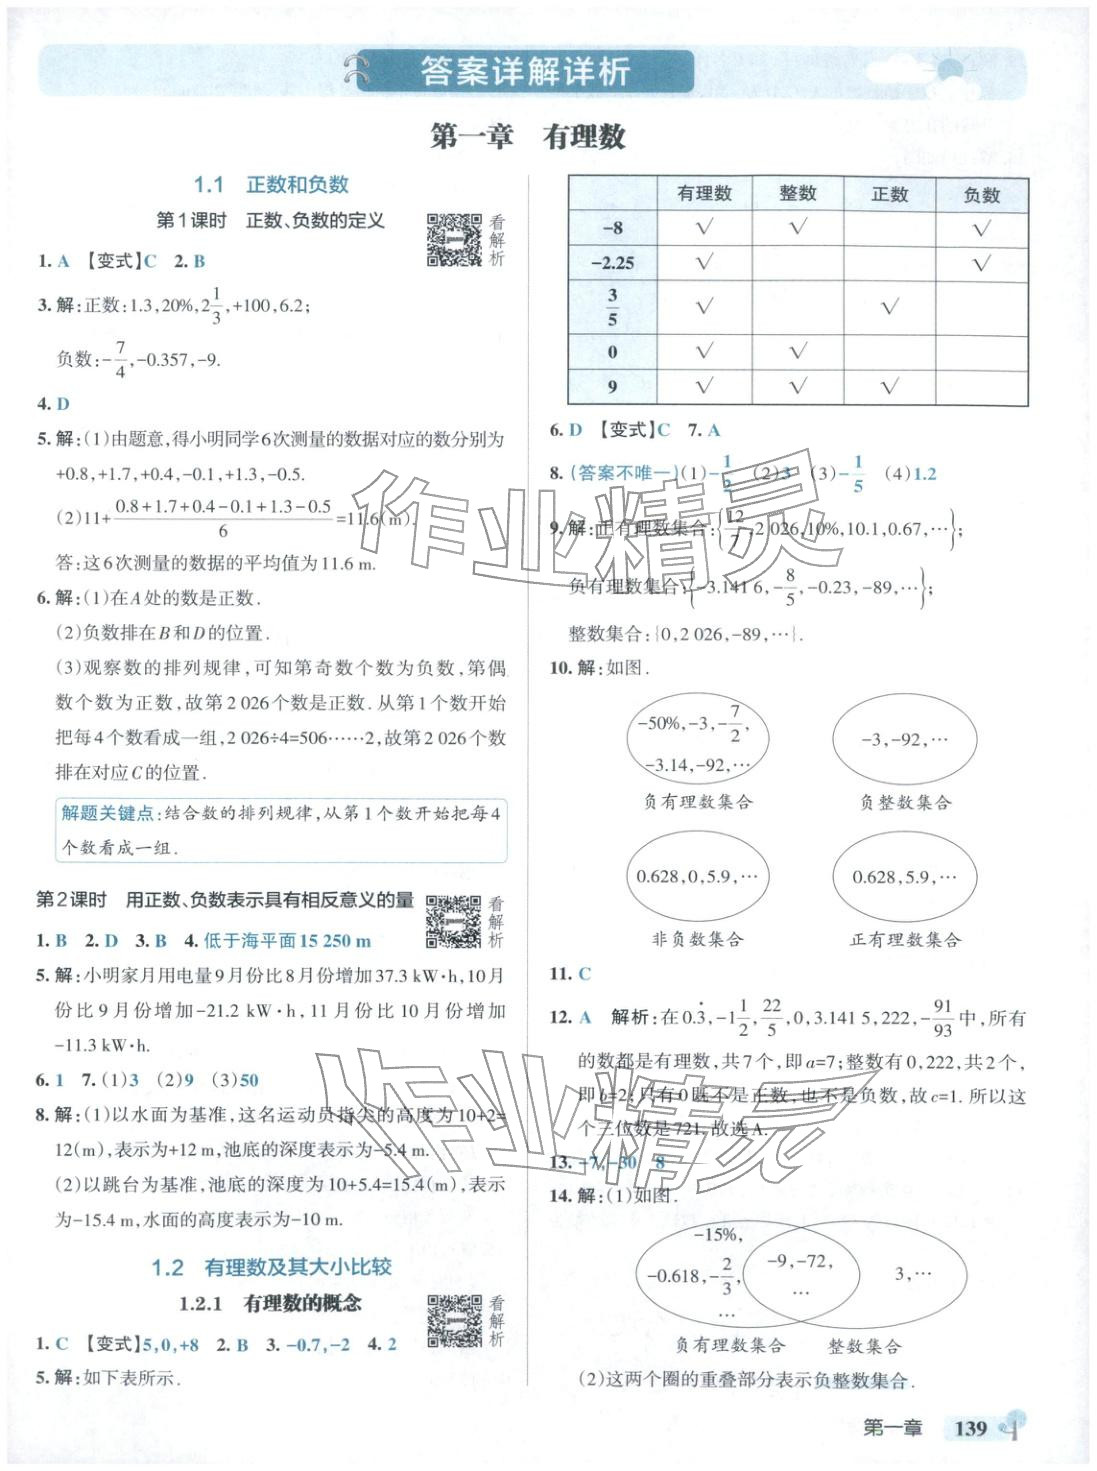 答案详解详析
第一章 有理数
1.1 正数和负数
第1课时 正数、负数的定义
看解析
1. A 【变式】C 2. B
3. 解:正数:1.3,20%,2 1/3,+100,6.2;
负数:-7/4,-0.357,-9.
4. D
5. 解:(1)由题意,得小明同学6次测量的数据对应的数分别为
+0.8,+1.7,+0.4,-0.1,+1.3,-0.5.
(2)11+(0.8+1.7+0.4-0.1+1.3-0.5)/6=11.6(m).
答:这6次测量的数据的平均值为11.6 m.
6. 解:(1)在A处的数是正数.
(2)负数排在B和D的位置.
(3)观察数的排列规律,可知第奇数个数为负数,第偶
数个数为正数,故第2 026个数是正数.从第1个数开始
把每4个数看成一组,2 026÷4=506……2,故第2 026个数
排在对应C的位置.
解题关键点:结合数的排列规律,从第1个数开始把每4
个数看成一组.
第2课时 用正数、负数表示具有相反意义的量
看解析
1. B 2. D 3. B 4. 低于海平面15 250 m
5. 解:小明家月用电量9月份比8月份增加37.3 kW·h,10月
份比9月份增加-21.2 kW·h,11月份比10月份增加
-11.3 kW·h.
6. 1 7. (1)3 (2)9 (3)50
8. 解:(1)以水面为基准,这名运动员指尖的高度为10+2=
12(m),表示为+12 m,池底的深度表示为-5.4 m.
(2)以跳台为基准,池底的深度为10+5.4=15.4(m),表示
为-15.4 m,水面的高度表示为-10 m.
1.2 有理数及其大小比较
1.2.1 有理数的概念
看解析
1. C 【变式】5,0,+8 2. B 3. -0.7,-2 4. 2
5. 解:如下表所示.
有理数 整数 正数 负数
-8 √ √ √
-2.25 √ √
3/5 √ √
0 √ √
9 √ √ √
6. D 【变式】C 7. A
8. (答案不唯一)(1)-1/2 (2)3 (3)-1/5 (4)1.2
9. 解:正有理数集合:{12/7,2 026,10%,10.1,0.67,…};
负有理数集合:{-3.141 6,-8/5,-0.23,-89,…};
整数集合:{0,2 026,-89,…}.
10. 解:如图.
-50%,-3,-7/2,
-3.14,-92,…
负有理数集合
-3,-92,…
负整数集合
0.628,0,5.9,…
非负数集合
0.628,5.9,…
正有理数集合
11. C
12. A 解析:在0.3̇,-1 1/2,22/5,0,3.141 5,222,-91/93中,所有
的数都是有理数,共7个,即a=7;整数有0,222,共2个,
即b=2;只有0既不是正数,也不是负数,故c=1.所以这
个三位数是721.故选A.
13. -7,-30 8
14. 解:(1)如图.
-15%,
-0.618,-2/3,
…
-9,-72,
…
3,…
负有理数集合 整数集合
(2)这两个圈的重叠部分表示负整数集合.
第一章 139
作业精灵
作业精灵